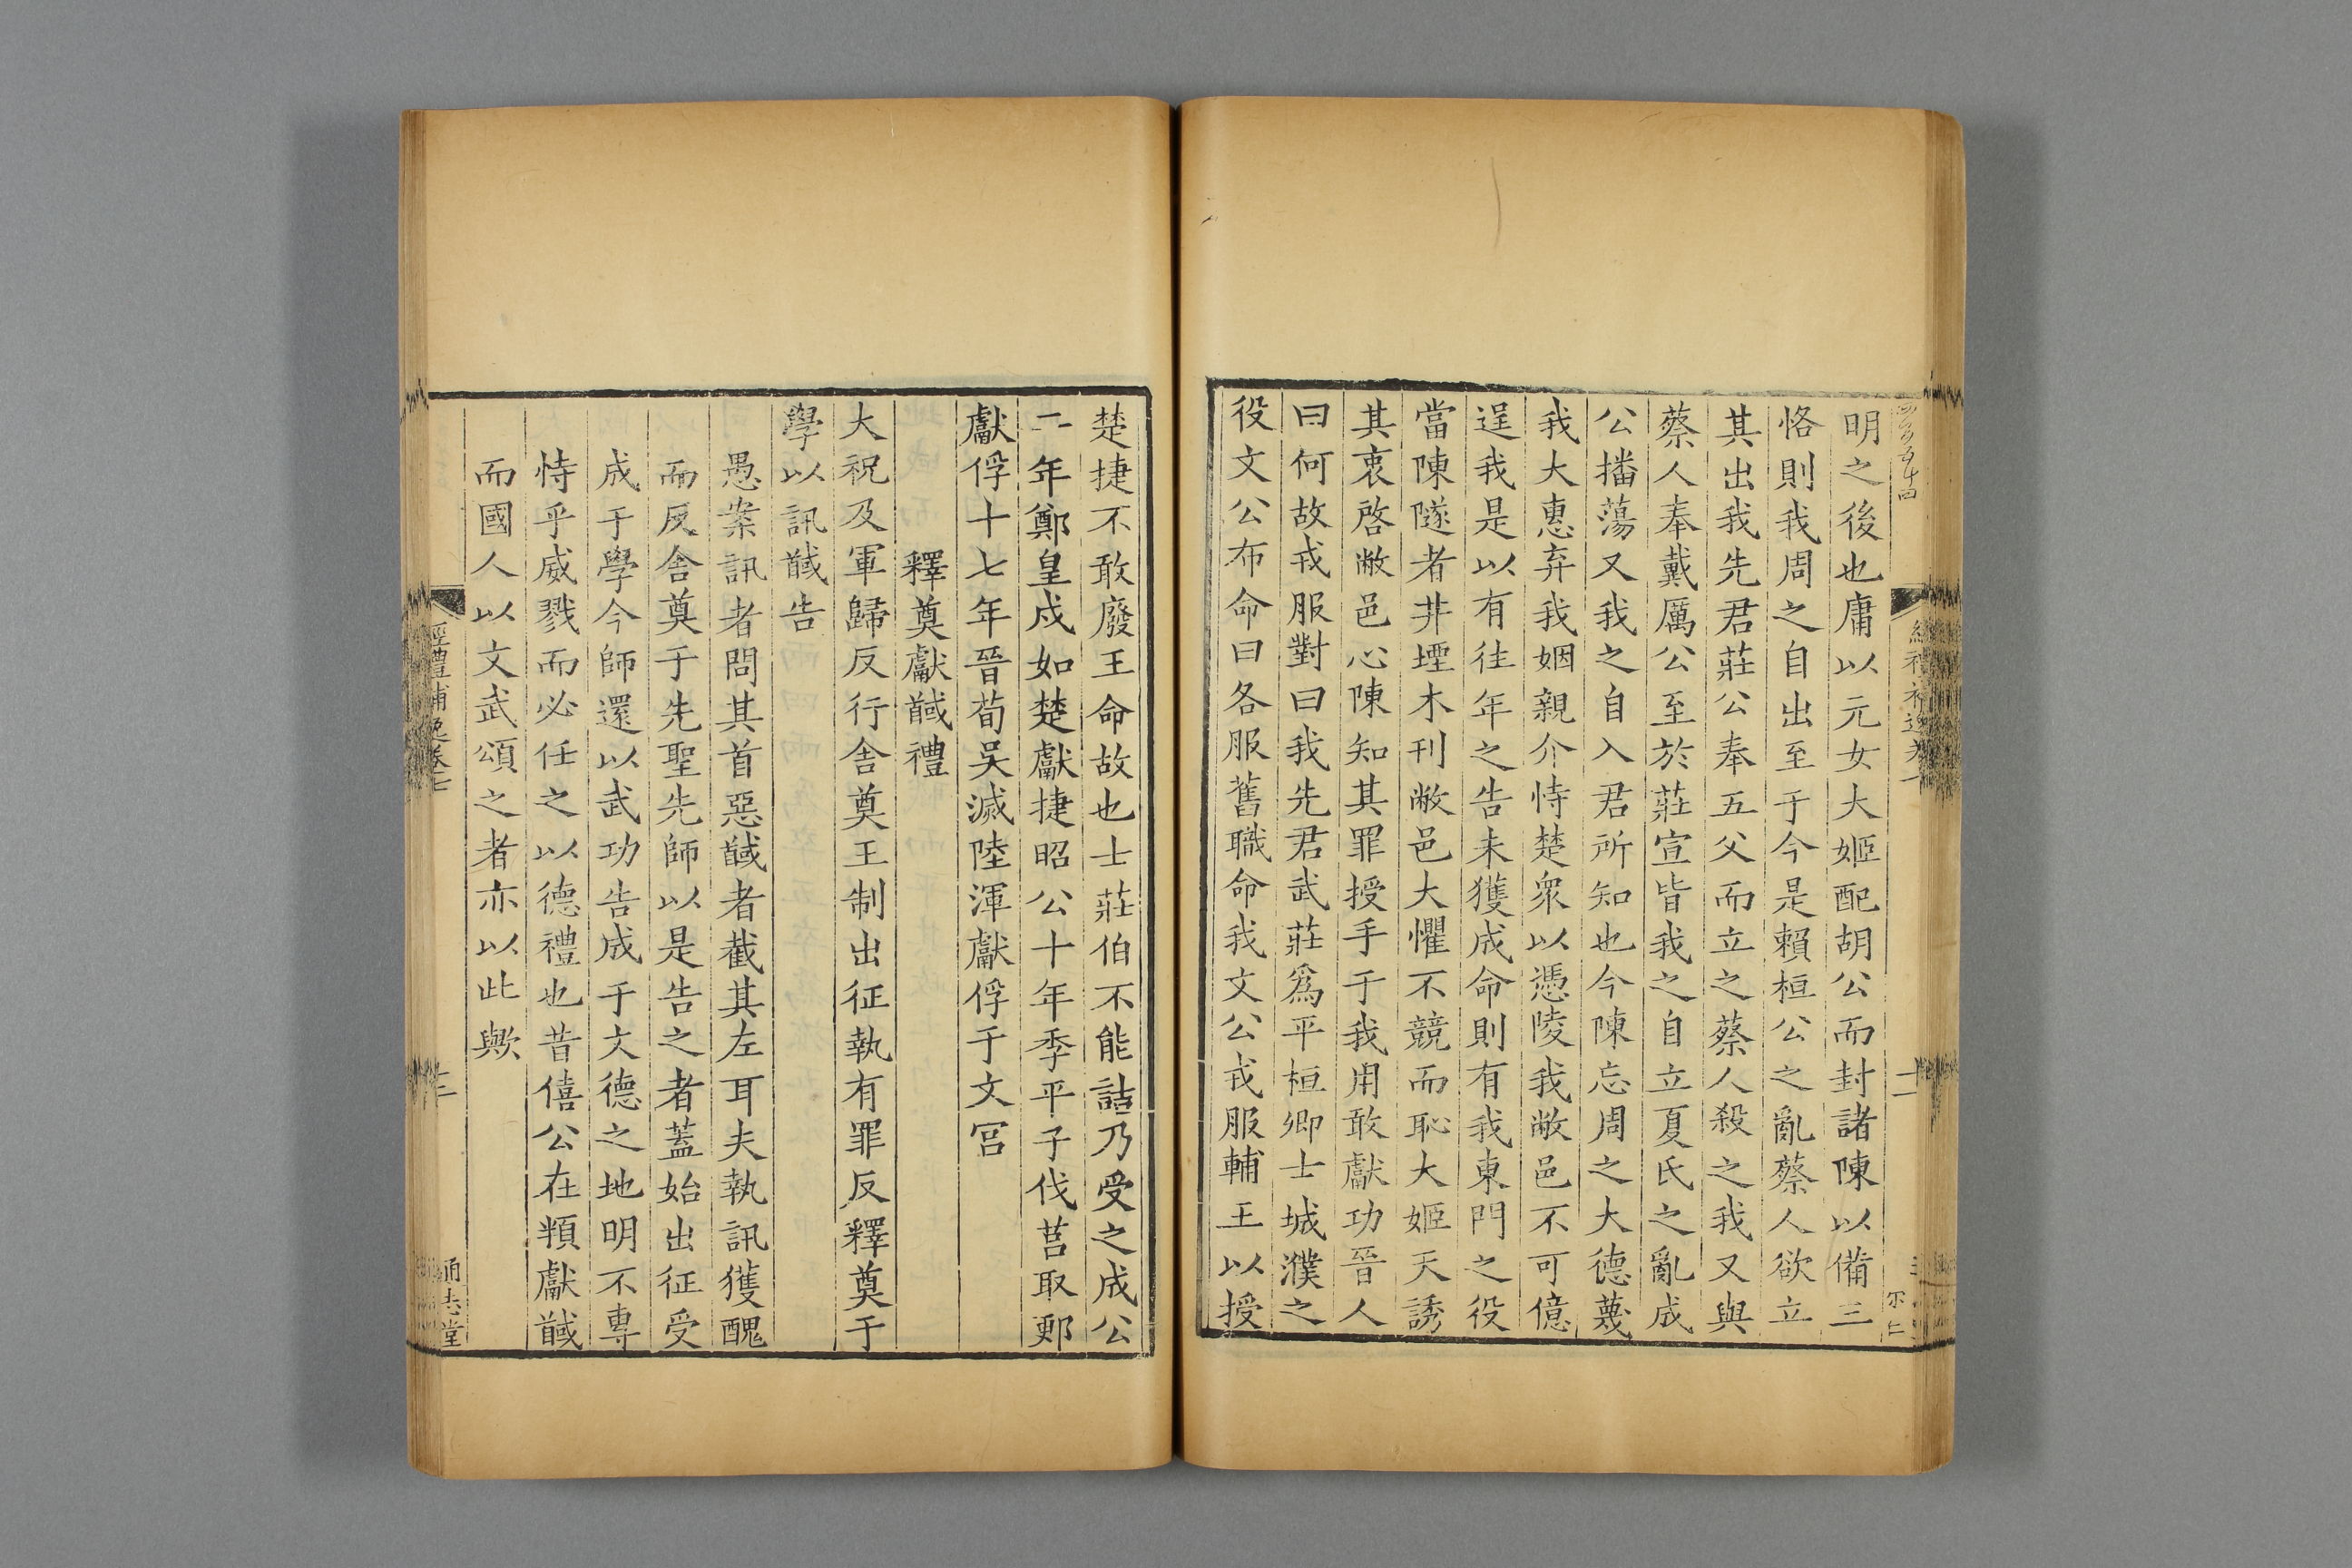 明之後也庸以元女大姬配胡公而封諸陳以備三
恪則我周之自出至于今是賴桓公之亂蔡人欲立
其出我先君莊公奉五父而立之蔡人殺之我又與
蔡人奉戴厲公至於莊宣皆我之自立夏氏之亂成
公播蕩又我之自入君所知也今陳忘周之大德蔑
我大惠弃我姻親介恃楚衆以憑陵我敝邑不可億
逞我是以有往年之告未獲成命則有我東門之役
當陳隧者井堙木刊敝邑大懼不競而恥大姬天誘
其衷啓敝邑心陳知其罪授手于我用敢獻功晉人
曰何故戎服對曰我先君武莊爲平桓卿士城濮之
役文公布命曰各服舊職命我文公戎服輔王以授
楚捷不敢廢王命故也士莊伯不能詰乃受之成公
二年鄭皇戍如楚獻捷昭公十年季平子伐莒取郠
獻俘十七年晉荀吴滅陸渾獻俘于文宫
釋奠獻馘禮
大祝及軍歸反行舍奠王制出征執有罪反釋奠于
學以訊馘告
愚案訊者問其首惡馘者截其左耳夫執訊獲醜
而反舍奠于先聖先師以是告之者蓋始出征受
成于學今師還以武功告成于文德之地明不專
恃乎威戮而必任之以德禮也昔僖公在頖獻馘
而國人以文武頌之者亦以此歟
經禮補逸卷七
十二
通志堂